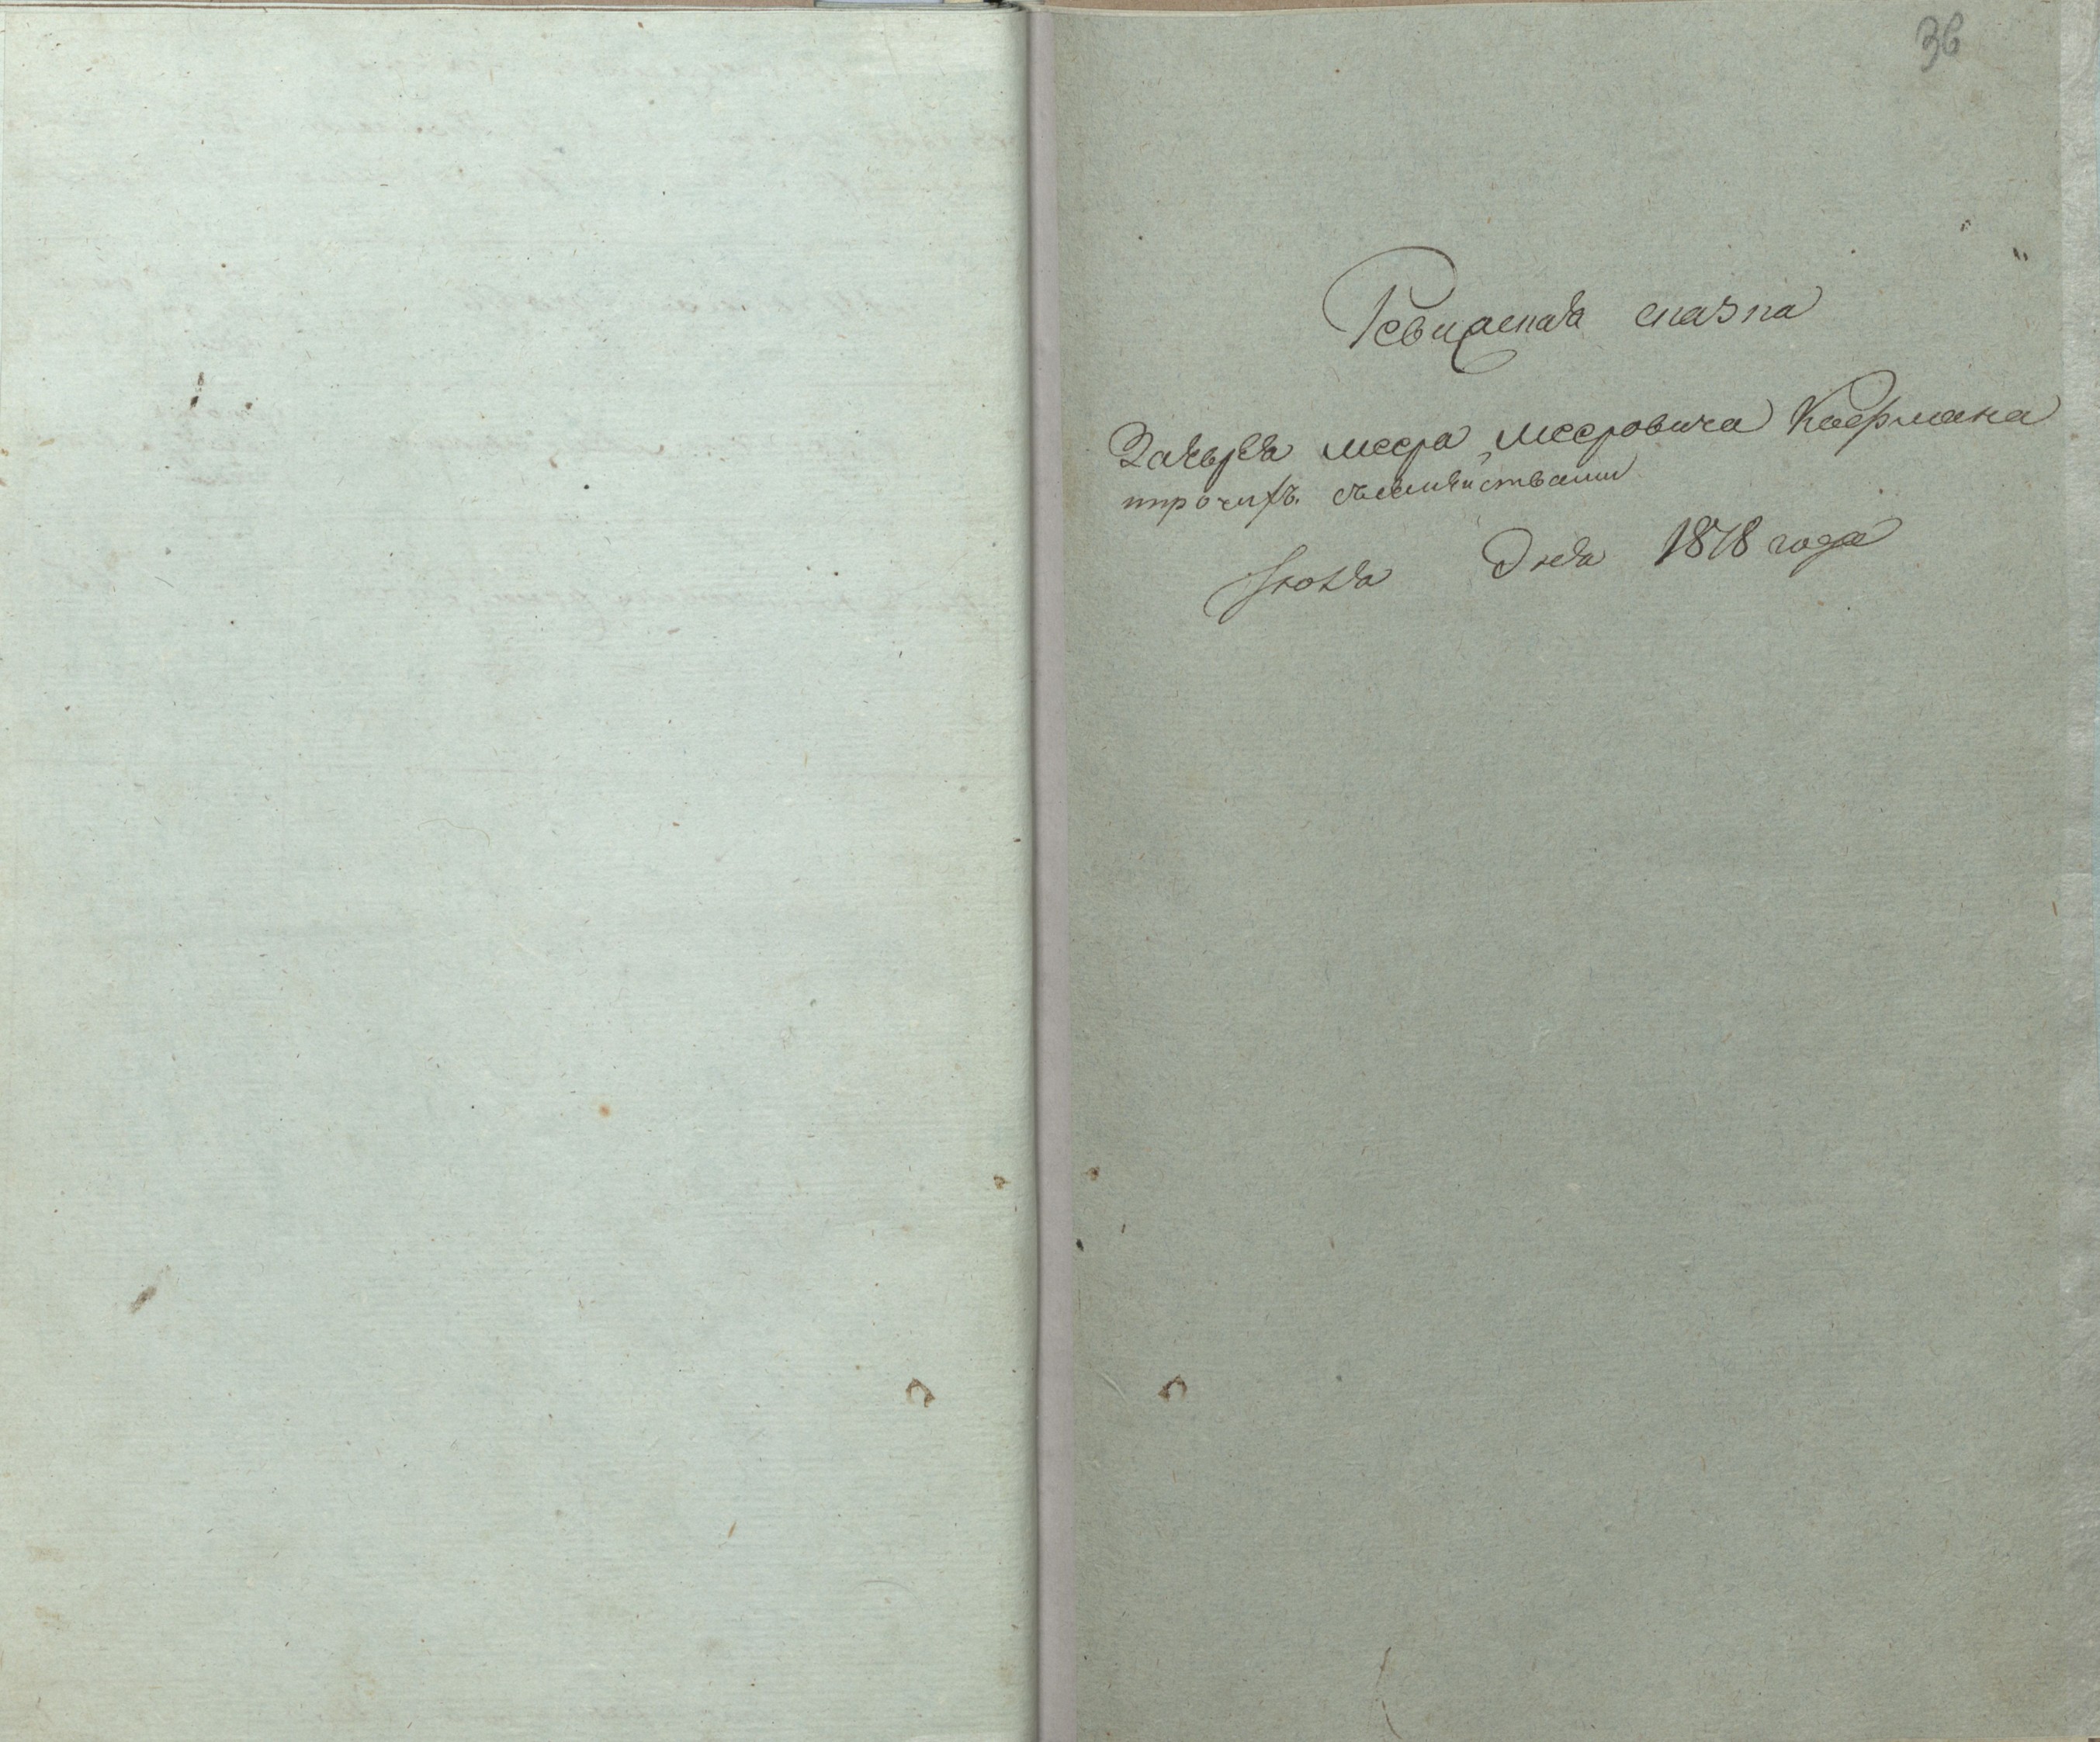 36
Ревизская сказка
меера Мееровича Кофмана
прочихъ съемействами
Июля Дня 1818 года